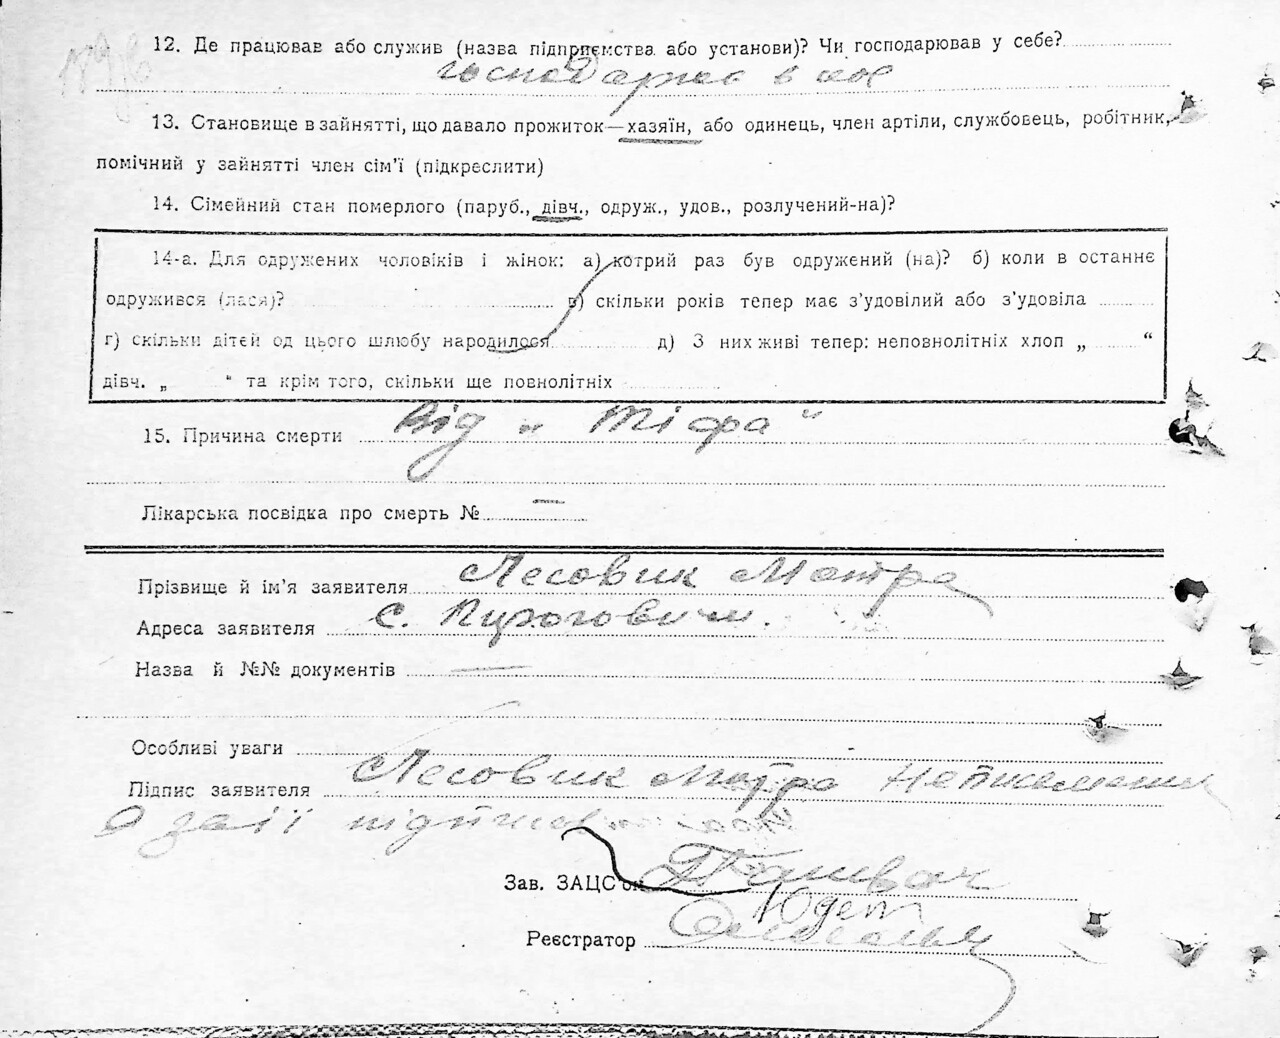 12. Де працював або служив (назва підприємства або установи)? Чи господарював у себе?
господарка в
13. Становище в зайнятті, що давало прожиток—хазяїн, або одинець, член артіли, службовець, робітник,
помічний у зайнятті член сім’ї (підкреслити)
14. Сімейний стан померлого (паруб., дівч., одруж., удов., розлучений-на)?
14-а. Для одружених чоловіків і жінок: а) котрий раз був одружений (на)? б) коли в останнє
одружився (лася)? в) скільки років тепер має з’удовілий або з’удовіла
г) скільки дітей од цього шлюбу народилося д) З них живі тепер: неповнолітніх хлоп „ “
дівч. „ “ та крім того, скільки ще повнолітніх
15. Причина смерти Від „ Тіфа “
Лікарська посвідка про смерть № —
Прізвище й ім’я заявителя Лесовик Мотря
Адреса заявителя с. Пироговичи.
Назва й №№ документів —
Особливі уваги
Підпис заявителя Лесовик Мотря Неписьменна
а за її підписав
Зав. ЗАЦС’ом
Реєстратор